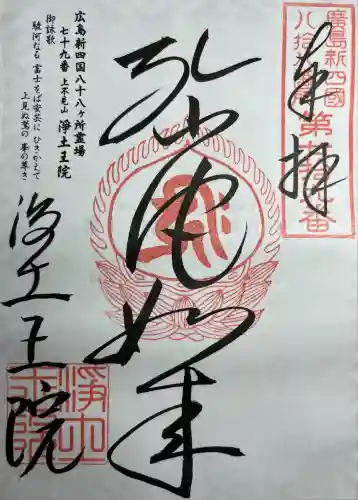 奉拝
廣島新四國
八拾
第
番
弥陀如来
広島新四国八十八ヶ所霊場
七十九番 上不見山 浄土王院
御詠歌
駿河なる 富士をば安芸に ひきかえて
上見ぬ鷲の 峯の尊さ
浄土王院